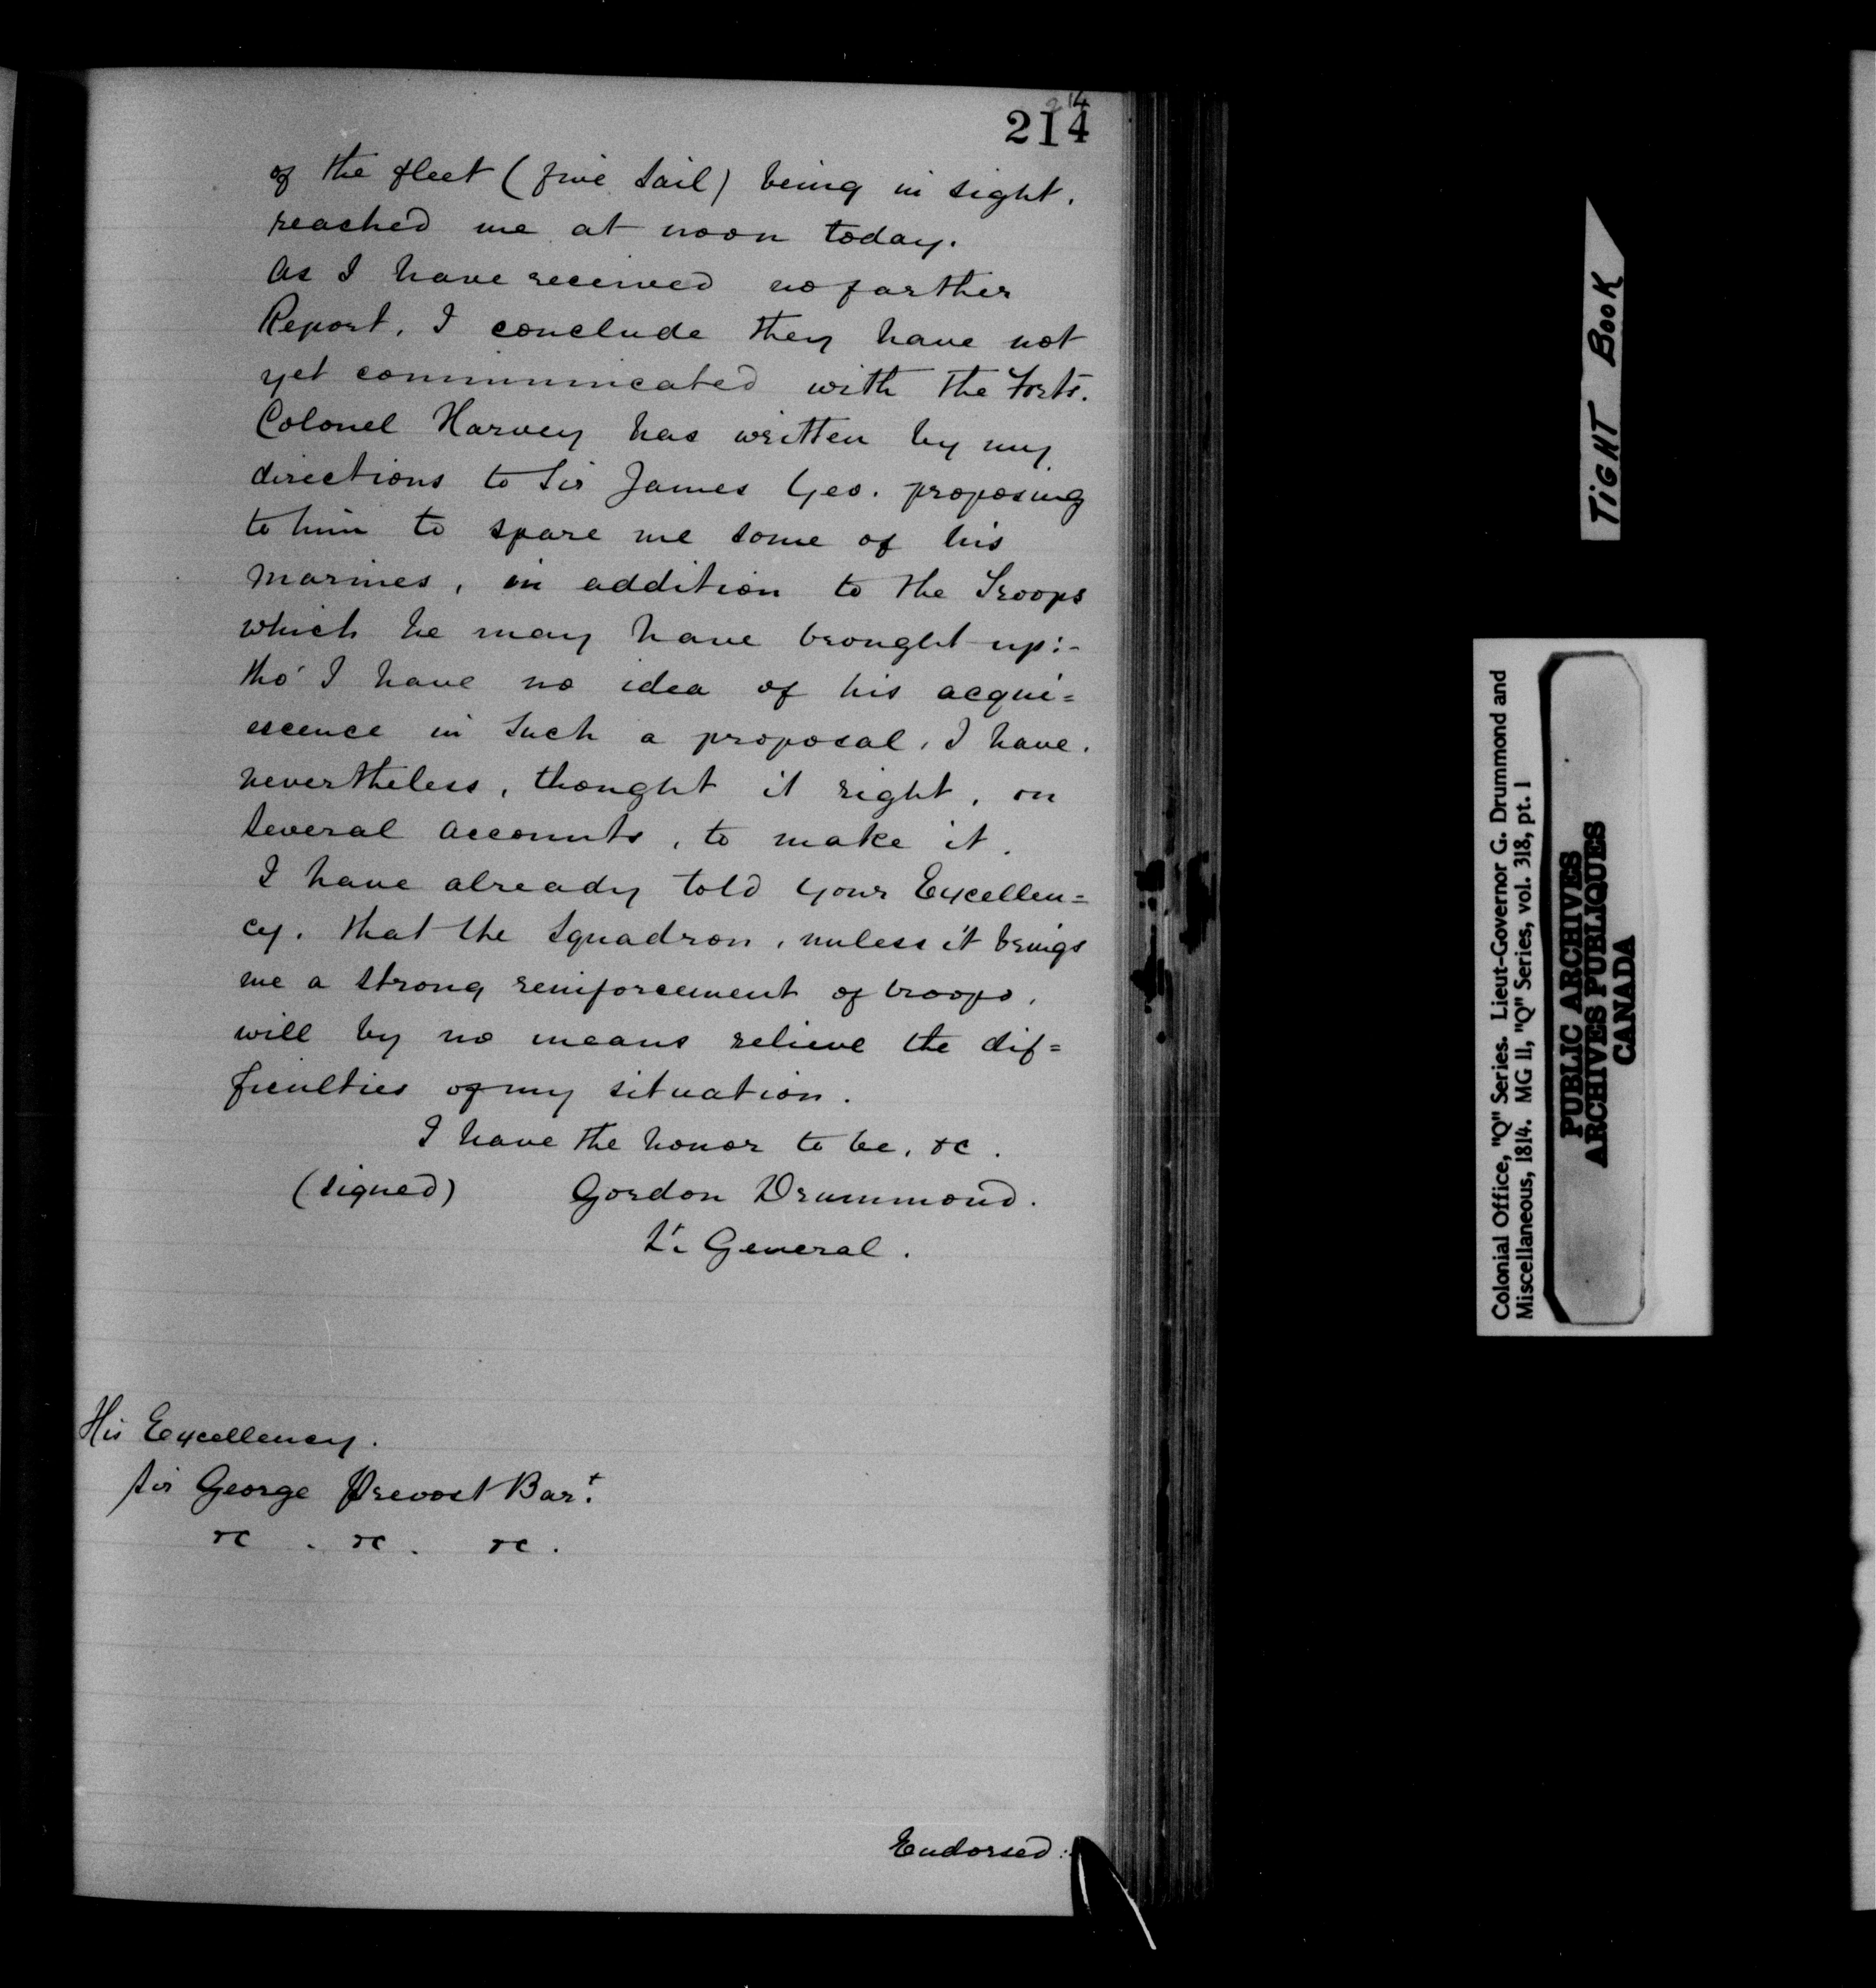 214
214
of the fleet (five sail) being in sight,
reached me at noon today.
As I have received no farther
Report, I conclude they have not
yet communicated with the Forts.
Colonel Harvey has written by my
directions to Sir James Yeo. proposing
to him to spare me some of his
marines, in addition to the Troops
which he may have brought up:-
tho' I have no idea of his acqui=
escence in such a proposal, I have,
nevertheless, thought it right, on
several accounts, to make it.
I have already told your Excellen=
cy, that the Squadron, unless it brings
me a strong reinforcement of troops,
will by no means relieve the dif=
ficulties of my situation.
I have the honor to be, &c.
(signed) Gordon Drummond.
Lt. General.
His Excellency.
Sir George Prevost Bart.
&c. &c. &c.
Endorsed:
TIGHT BOOK
Colonial Office, "Q" Series. Lieut-Governor G. Drummond and
Miscellaneous, 1814. MG 11, "Q" Series, vol. 318, pt. 1
PUBLIC ARCHIVES
ARCHIVES PUBLIQUES
CANADA